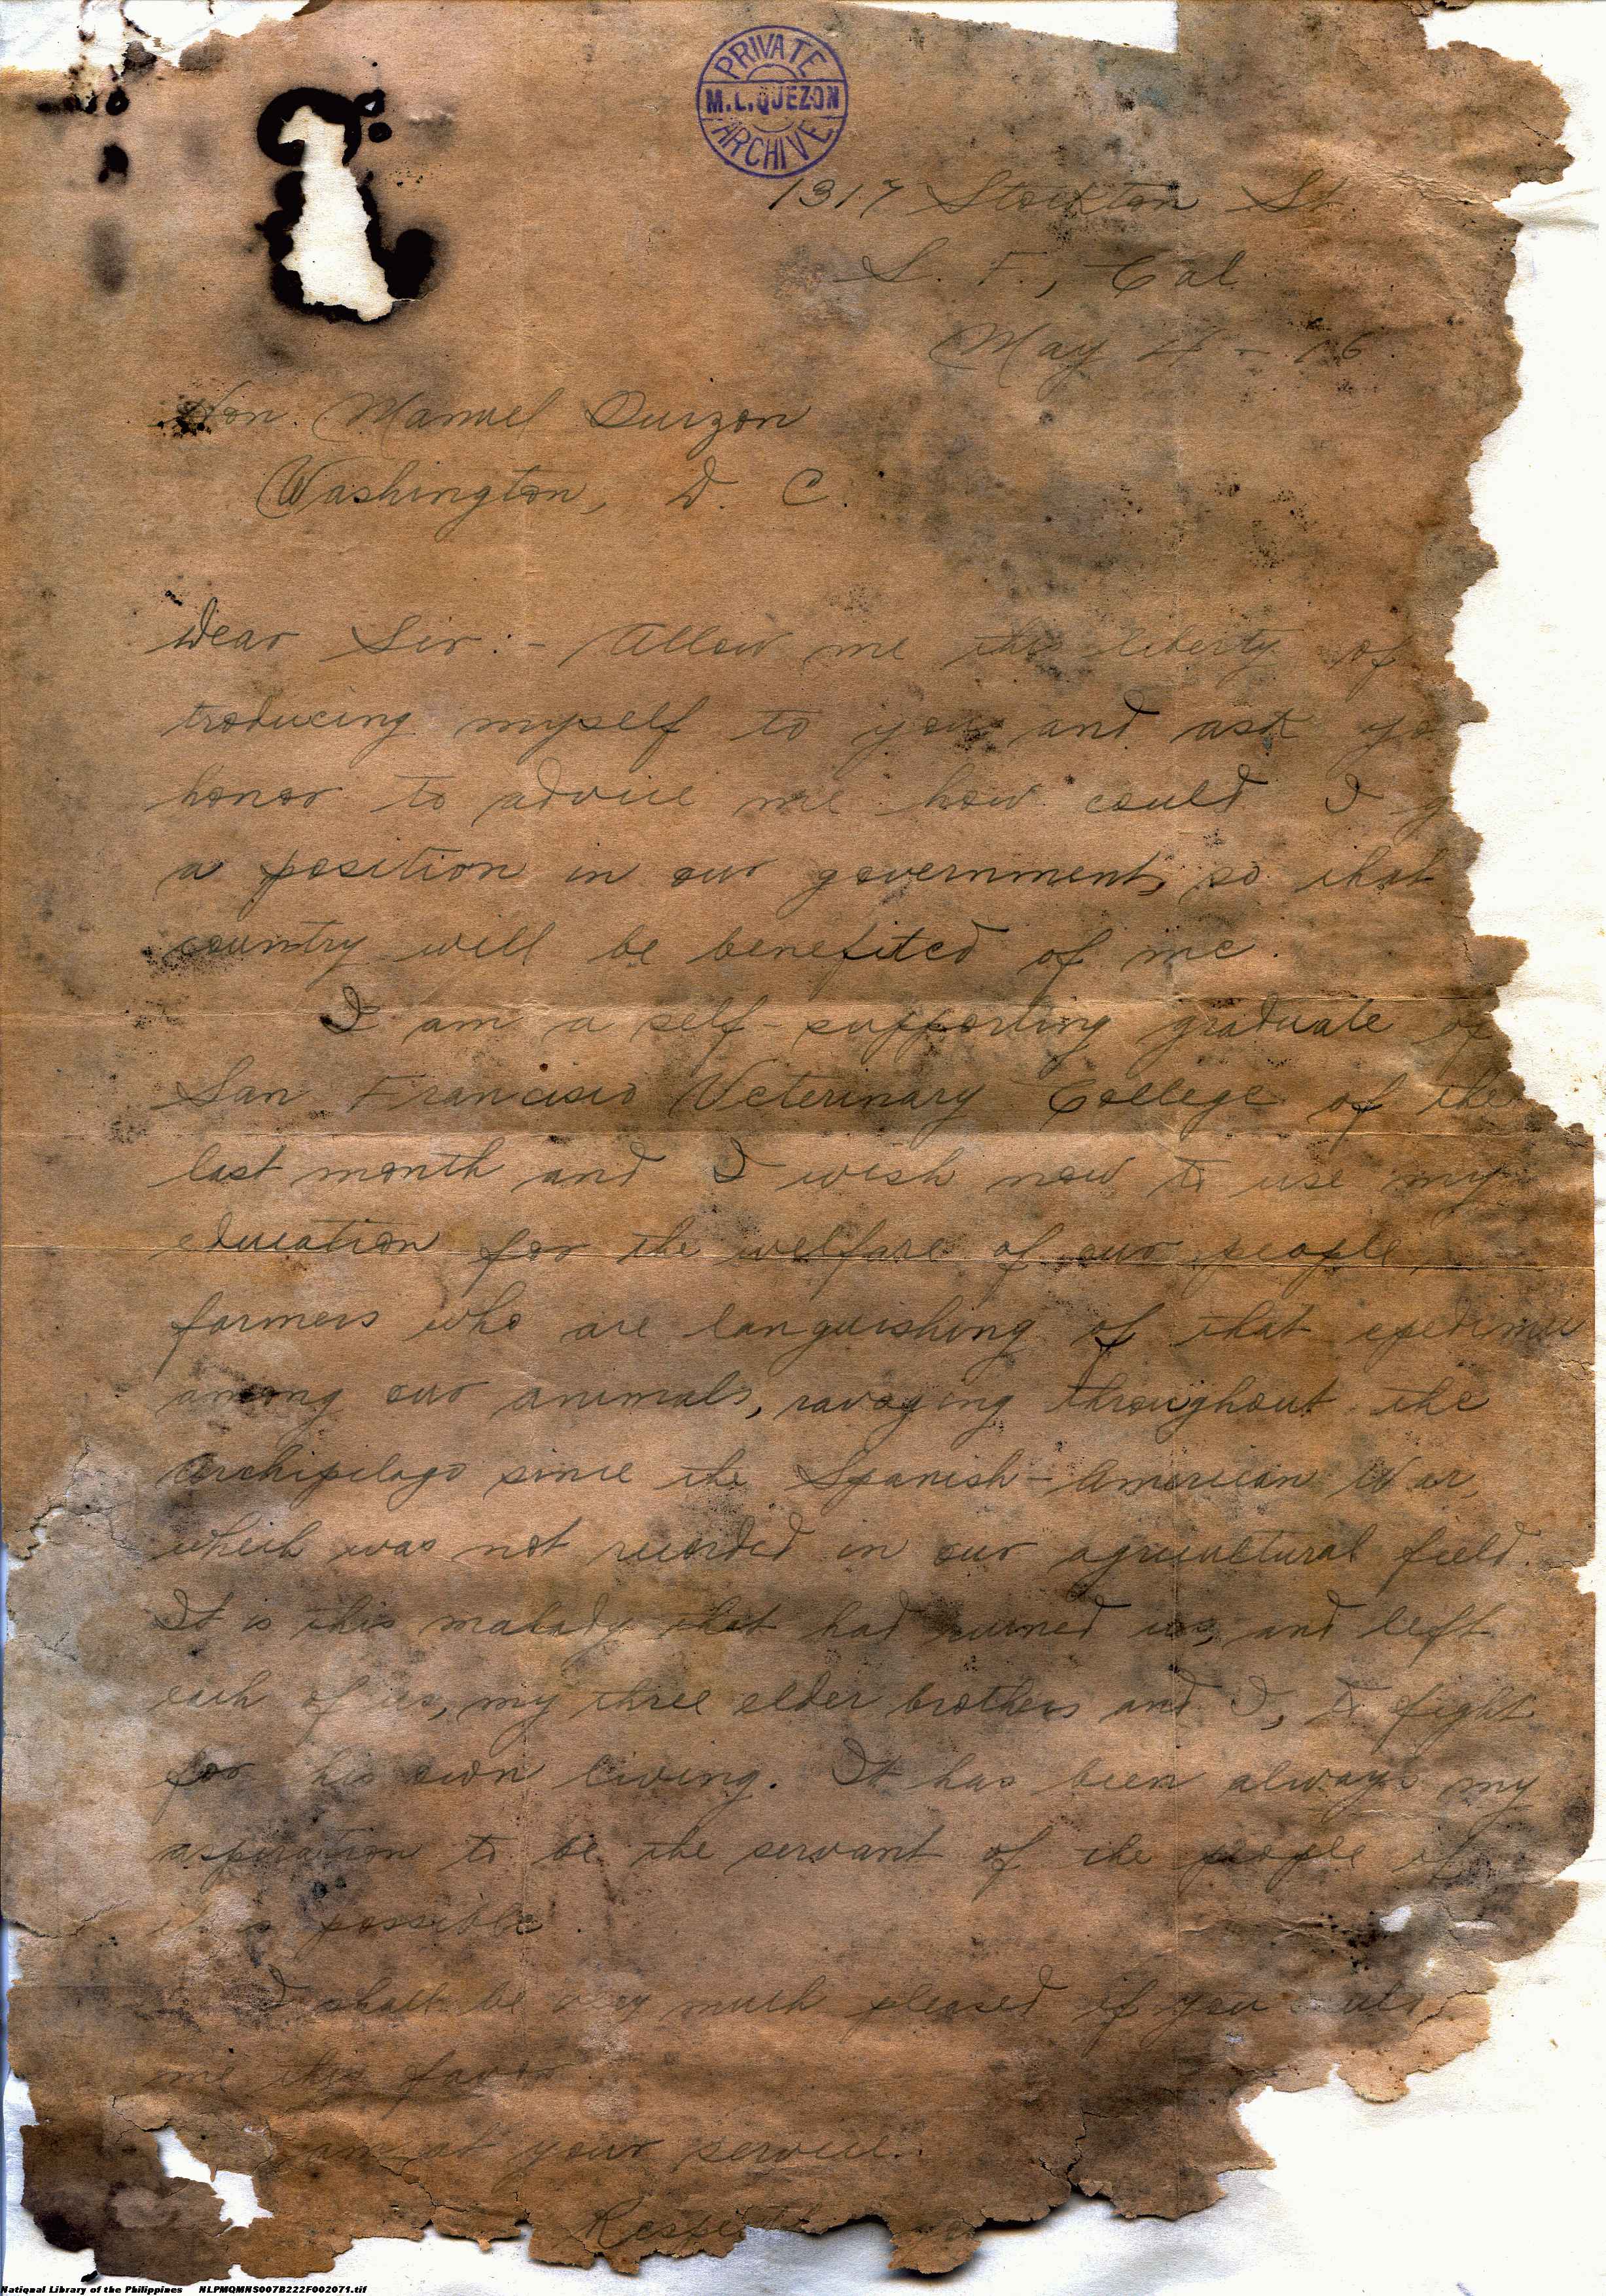 PRIVATE
M.L.QUEZON
ARCHIVE
1317 Stockton St.
S. F., Cal.
May 4 - 16
Hon. Manuel Quezon
Washington, D. C.
Dear Sir:- Allow me the liberty of
troducing myself to you and ask yo
honor to advice me how could I g
a position in our government, so that
country will be benefited of me.
I am a self-supporting graduate of
San Francisco Veterinary College of the
last month and I wish now to use my
education for the welfare of our people,
farmers who are languishing of that epedimic
among our animals, ravaging throughout the
Archipelago since the Spanish-American War,
which was not recorded in our agricultural field.
It is this malady that had ruined us, and left
each of us, my three elder brothers and I, to fight
for his own living. It has been always my
aspiration to be the servant of the people if
it is possible.
I shall be very much pleased if you
me this favor.
am at your service.
National Library of the Philippines NLPMQMNS007B222F002071.tif